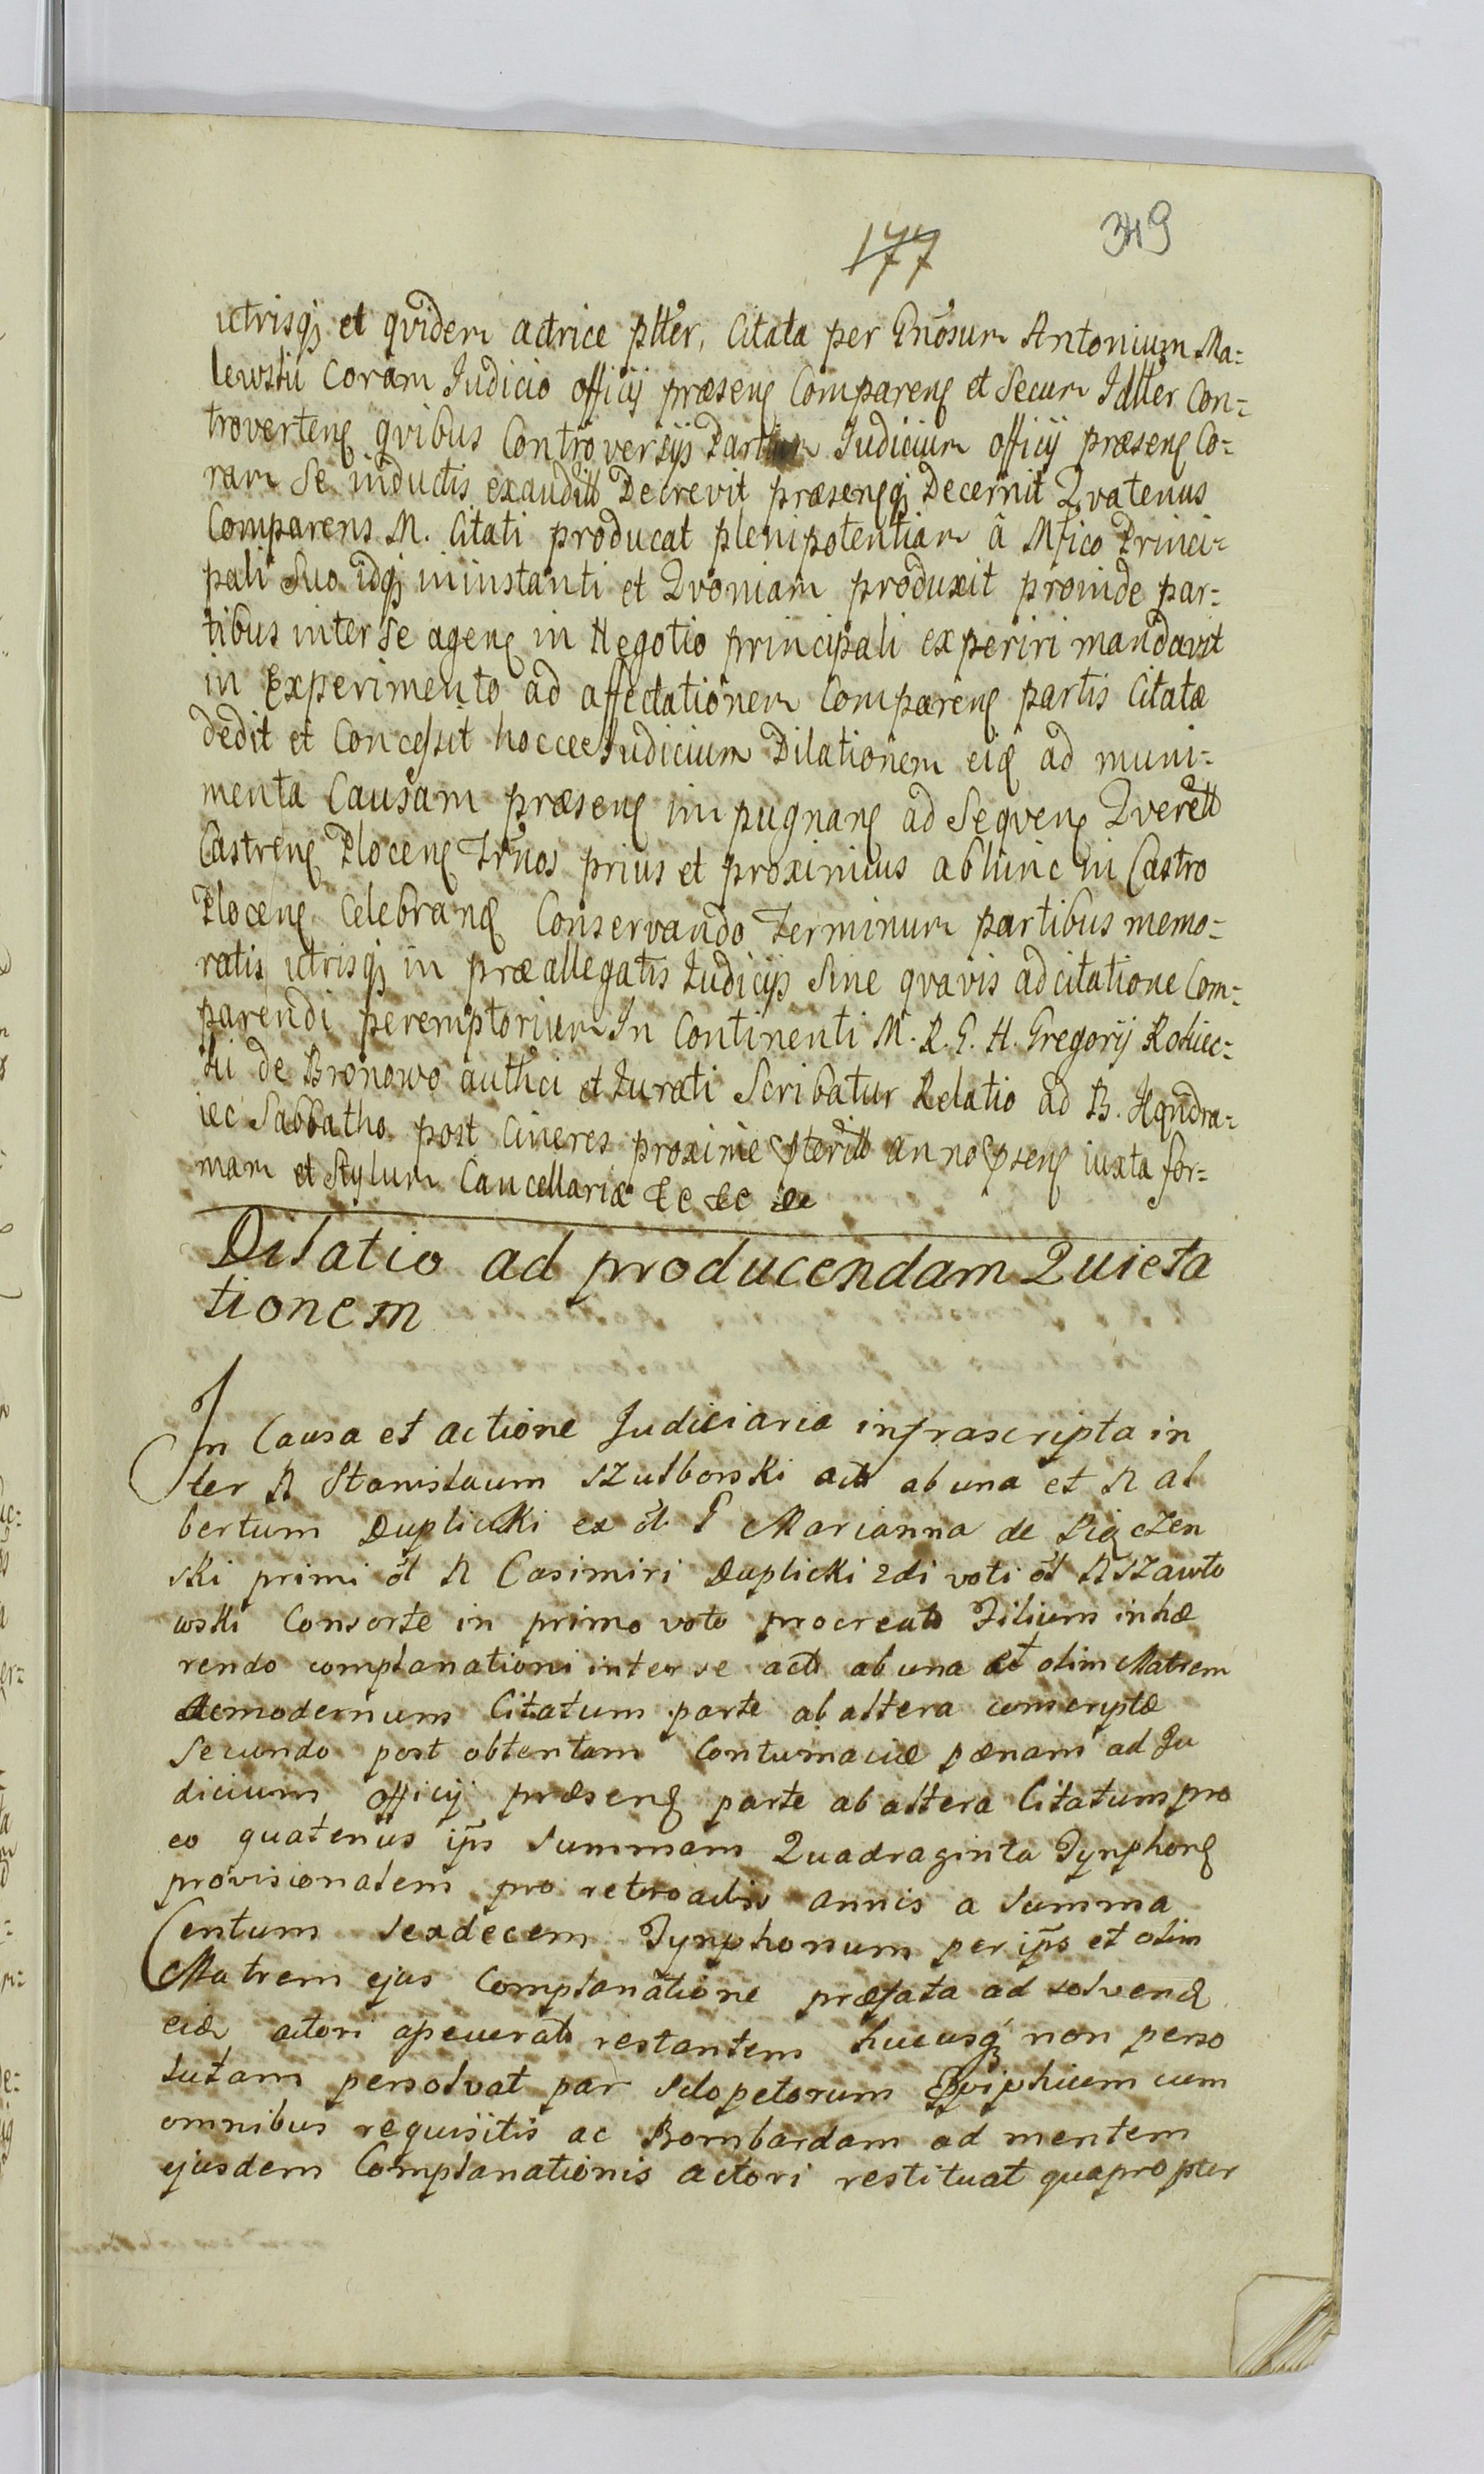 177 349
utrisq3 et qvidem actrice pltter, Citata per Gnosum Antonium Ma=
lewski Coram Judicio officij præsenς Comparenς et Secum Idtter Con=
trovertenς qvibus Controversijs Partium Judicium officij præsenς Co=
ram Se inductis exauditt Decrevit præsensq3 Decernit Qvatenus
Comparens M. Citati producat plenipotentiam â Mfico Princi=
pali Suo idq3 in instanti et Qvoniam produxit proinde par=
tibus inter Se agenς in Negotio principali experiri mandavit
in Experimento ad affectationem Comparenς partis Citatæ
dedit et Concessit hocce Judicium Dilationem eiς ad muni=
menta Causam præsenς impugnanς ad Seqvenς Qverell
Castrenς Plocenς Trnos prius et proximius abhinc in Castro
Plocenς Celebranς Conservando Terminum partibus memo=
ratis utrisq3 in præallegatis Judicijs Sine qvavis adcitatione Com=
parendi peremptorium In Continenti M. R. G. H. Gregorij Rokic=
ki de Bronowo authci et Jurati Scribatur Relatio ad B.
iec Sabbatho post Cineres proxime pteritt anno psenς iuxta for=
mam et Stylum Cancellariæ &c &c &c
Dilatio ad producendam Quieta
tionem
In Causa et actione Judiciaria infrascripta in
ter N Stanislaum Szulborski act ab una et N al
bertum Duplicki ex ol G Marianna de
ski primi ol N Casimiri Duplicki 2di voti ol N Szawło
wski Consorte in primo voto procreat Filium inhæ
rendo complanationi inter se act ab una et olim Matrem
ac modernum Citatum parte ab altera conscriptæ
Secundo post obtentam Contumaciæ pænam ad Ju
dicium officij præsenς parte ab altera Citatum pro
eo quatenus ips Summam Quadraginta Tynphonς
provisionalem pro retroactis annis a Summa
Centum Sexdecem Tynphonum per ips et olim
Matrem ejus Complanatione præfata ad solvenς
eidς actori restantem hucusq3 non perso
lutam persolvat par Sclopetorum cum
omnibus requisitis ac Bombardam ad mentem
ejusdem Complanationis actori restituat quapropter